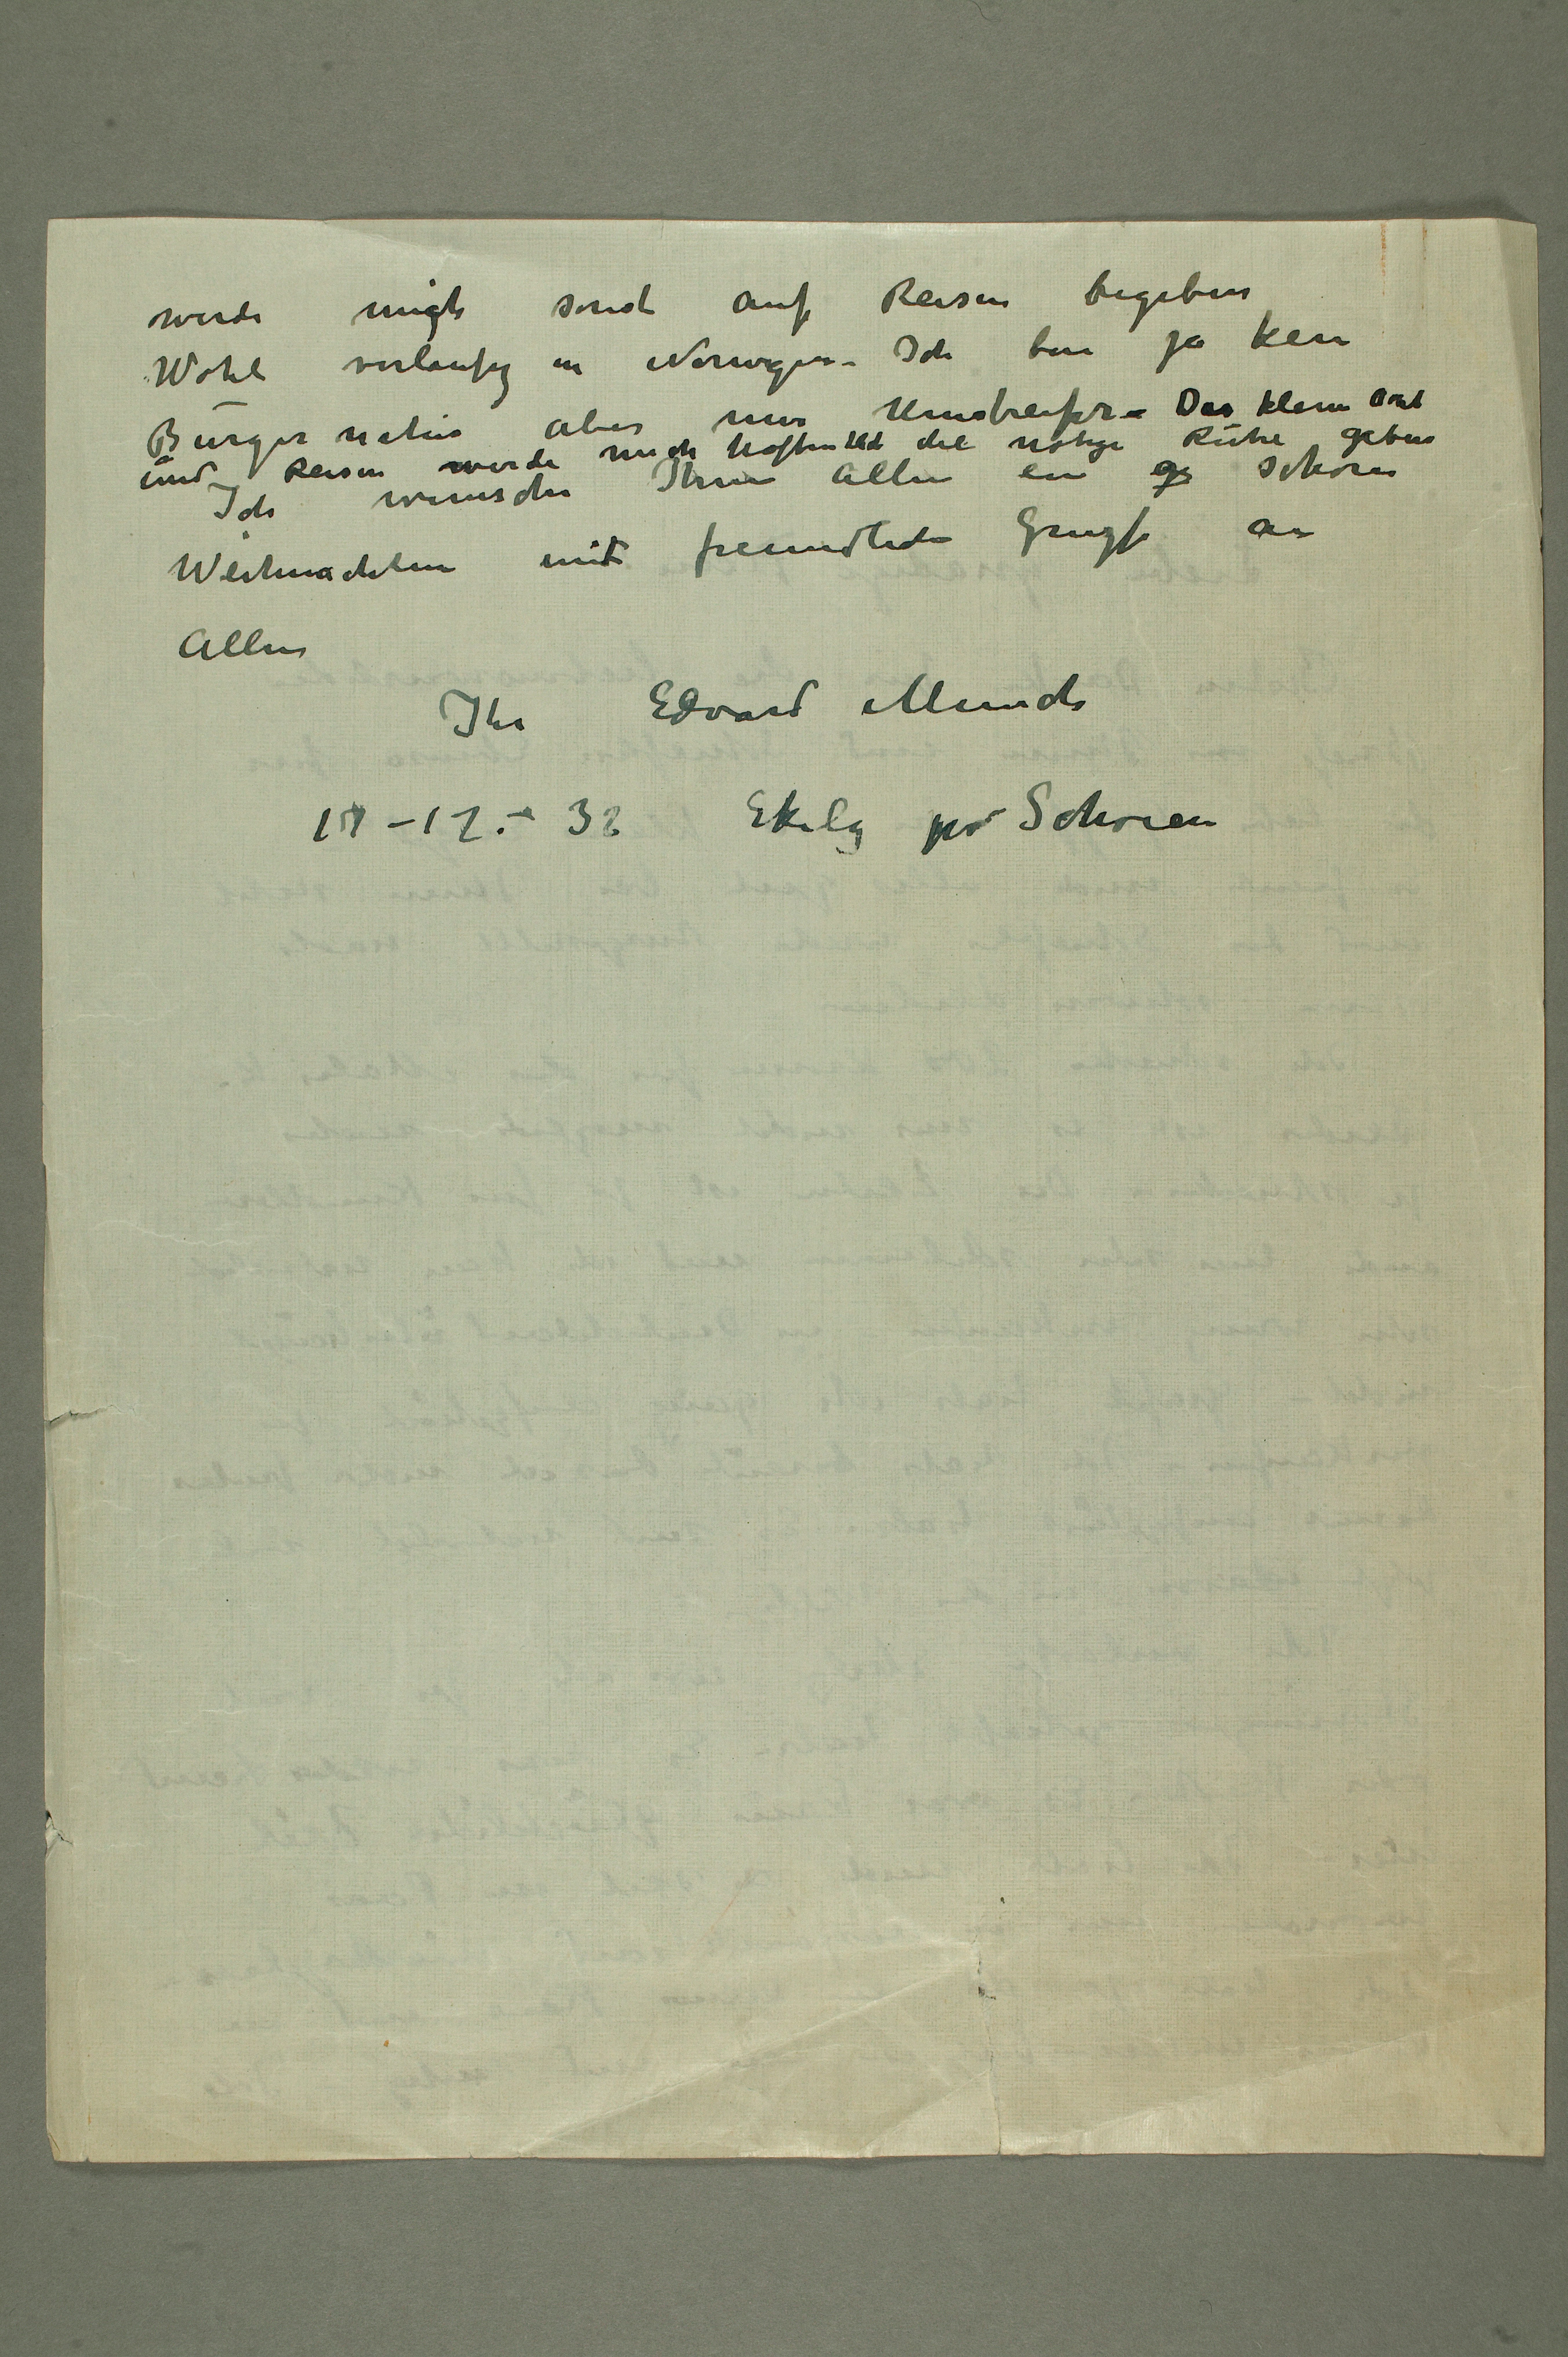 werde migh sonst auf Reisen begeben
Wohl vorlaufig in Norwegen – Ich bin ja kein
Bürger natur aber nur Umstreifer – Das kleine Ort
und Reisen werde mich hoffentlich die nötige Ruhe geben
Ich wunsche Ihnen Allen ein schönen
Weihnachten mit freundliche Grusse an
Allen
Ihr Edvard Munch
17 – 12. – 32 Ekely pr Schøien